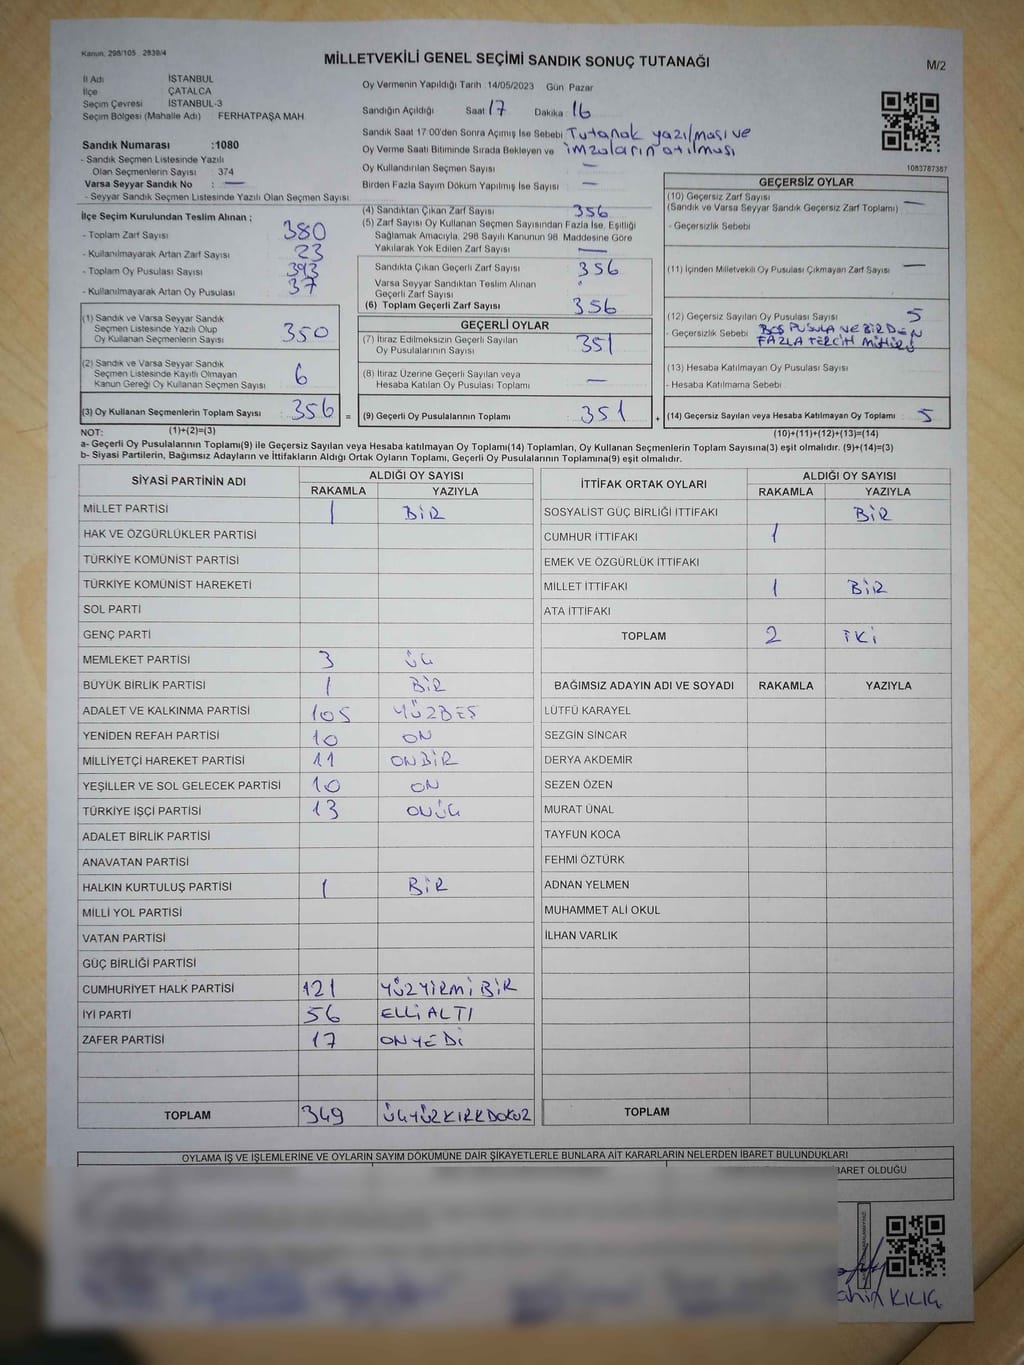 Kanun. 298/105 2839/4
MİLLETVEKİLİ GENEL SEÇİMİ SANDIK SONUÇ TUTANAĞI
M/2
İl Adı İSTANBUL
İlçe ÇATALCA
Seçim Çevresi İSTANBUL-3
Seçim Bölgesi (Mahalle Adı) FERHATPAŞA MAH.
Sandık Numarası :1080
- Sandık Seçmen Listesinde Yazılı
Olan Seçmenlerin Sayısı : 374
Varsa Seyyar Sandık No : —
- Seyyar Sandık Seçmen Listesinde Yazılı Olan Seçmen Sayısı:
Oy Vermenin Yapıldığı Tarih :14/05/2023 Gün Pazar
Sandığın Açıldığı Saat 17 Dakika 16
Sandık Saat 17:00'den Sonra Açımış İse Sebebi Tutanak yazılması ve
Oy Verme Saati Bitiminde Sırada Bekleyen ve imzaların atılması
Oy Kullandırılan Seçmen Sayısı —
Birden Fazla Sayım Döküm Yapılmış İse Sayısı —
1083787387
İlçe Seçim Kurulundan Teslim Alınan ;
- Toplam Zarf Sayısı : 380
- Kullanılmayarak Artan Zarf Sayısı : 23
- Toplam Oy Pusulası Sayısı : 393
- Kullanılmayarak Artan Oy Pusulası : 37
(1) Sandık ve Varsa Seyyar Sandık
Seçmen Listesinde Yazılı Olup
Oy Kullanan Seçmenlerin Sayısı : 350
(2) Sandık ve Varsa Seyyar Sandık
Seçmen Listesinde Kayıtlı Olmayan
Kanun Gereği Oy Kullanan Seçmen Sayısı : 6
(3) Oy Kullanan Seçmenlerin Toplam Sayısı : 356 =
(1)+(2)=(3)
(4) Sandıktan Çıkan Zarf Sayısı : 356
(5) Zarf Sayısı Oy Kullanan Seçmen Sayısından Fazla İse, Eşitliği
Sağlamak Amacıyla, 298 Sayılı Kanunun 98. Maddesine Göre
Yakılarak Yok Edilen Zarf Sayısı : —
Sandıkta Çıkan Geçerli Zarf Sayısı : 356
Varsa Seyyar Sandıktan Teslim Alınan
Geçerli Zarf Sayısı :
(6) Toplam Geçerli Zarf Sayısı : 356
GEÇERLİ OYLAR
(7) İtiraz Edilmeksizin Geçerli Sayılan
Oy Pusulalarının Sayısı : 351
(8) İtiraz Üzerine Geçerli Sayılan veya
Hesaba Katılan Oy Pusulası Toplamı : —
(9) Geçerli Oy Pusulalarının Toplamı : 351 +
GEÇERSİZ OYLAR
(10) Geçersiz Zarf Sayısı
(Sandık ve Varsa Seyyar Sandık Geçersiz Zarf Toplamı) : —
- Geçersizlik Sebebi :
(11) İçinden Milletvekili Oy Pusulası Çıkmayan Zarf Sayısı : —
(12) Geçersiz Sayılan Oy Pusulası Sayısı : 5
- Geçersizlik Sebebi : BOŞ PUSULA VE BİRDEN
FAZLA TERCİH
(13) Hesaba Katılmayan Oy Pusulası Sayısı :
- Hesaba Katılmama Sebebi :
(14) Geçersiz Sayılan veya Hesaba Katılmayan Oy Toplamı : 5
(10)+(11)+(12)+(13)=(14)
NOT:
a- Geçerli Oy Pusulalarının Toplamı(9) ile Geçersiz Sayılan veya Hesaba katılmayan Oy Toplamı(14) Toplamları, Oy Kullanan Seçmenlerin Toplam Sayısına(3) eşit olmalıdır. (9)+(14)=(3)
b- Siyasi Partilerin, Bağımsız Adayların ve İttifakların Aldığı Ortak Oyların Toplamı, Geçerli Oy Pusulalarının Toplamına(9) eşit olmalıdır.
SİYASİ PARTİNİN ADI ALDIĞI OY SAYISI
RAKAMLA YAZIYLA
MİLLET PARTİSİ 1 BİR
HAK VE ÖZGÜRLÜKLER PARTİSİ
TÜRKİYE KOMÜNİST PARTİSİ
TÜRKİYE KOMÜNİST HAREKETİ
SOL PARTİ
GENÇ PARTİ
MEMLEKET PARTİSİ 3 ÜÇ
BÜYÜK BİRLİK PARTİSİ 1 BİR
ADALET VE KALKINMA PARTİSİ 105 YÜZBEŞ
YENİDEN REFAH PARTİSİ 10 ON
MİLLİYETÇİ HAREKET PARTİSİ 11 ONBİR
YEŞİLLER VE SOL GELECEK PARTİSİ 10 ON
TÜRKİYE İŞÇİ PARTİSİ 13 ONÜÇ
ADALET BİRLİK PARTİSİ
ANAVATAN PARTİSİ
HALKIN KURTULUŞ PARTİSİ 1 BİR
MİLLİ YOL PARTİSİ
VATAN PARTİSİ
GÜÇ BİRLİĞİ PARTİSİ
CUMHURİYET HALK PARTİSİ 121 YÜZYİRMİ BİR
İYİ PARTİ 56 ELLİ ALTI
ZAFER PARTİSİ 17 ONYEDİ
TOPLAM 349 ÜÇYÜZKIRKDOKUZ
İTTİFAK ORTAK OYLARI ALDIĞI OY SAYISI
RAKAMLA YAZIYLA
SOSYALİST GÜÇ BİRLİĞİ İTTİFAKI BİR
CUMHUR İTTİFAKI 1
EMEK VE ÖZGÜRLÜK İTTİFAKI
MİLLET İTTİFAKI 1 BİR
ATA İTTİFAKI
TOPLAM 2 İKİ
BAĞIMSIZ ADAYIN ADI VE SOYADI RAKAMLA YAZIYLA
LÜTFÜ KARAYEL
SEZGİN SİNCAR
DERYA AKDEMİR
SEZEN ÖZEN
MURAT ÜNAL
TAYFUN KOCA
FEHMİ ÖZTÜRK
ADNAN YELMEN
MUHAMMET ALİ OKUL
İLHAN VARLIK
TOPLAM
OYLAMA İŞ VE İŞLEMLERİNE VE OYLARIN SAYIM DÖKÜMÜNE DAİR ŞİKAYETLERLE BUNLARA AİT KARARLARIN NELERDEN İBARET BULUNDUKLARI
İBARET OLDUĞU
KILIÇ